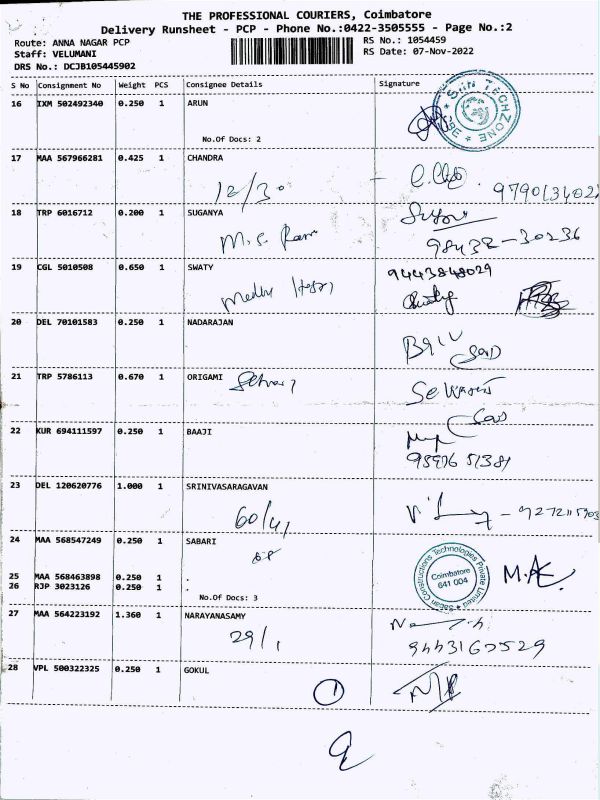 THE PROFESSIONAL COURIERS, Coimbatore
Delivery Runsheet - PCP - Phone No.:0422-3505555 - Page No.:2
Route: ANNA NAGAR PCP
Staff: VELUMANI
DRS No.: DCJB105445902
RS No.: 1054459
RS Date: 07-Nov-2022
S No Consignment No Weight PCS Consignee Details Signature
16 IXM 502492340 0.250 1 ARUN
SUN TECHZONE * CBE *
No.Of Docs: 2
17 MAA 567966281 0.425 1 CHANDRA
12/30
18 TRP 6016712 0.200 1 SUGANYA
98432-30236
19 CGL 5010508 0.650 1 SWATY
9443848029
20 DEL 70101583 0.250 1 NADARAJAN
21 TRP 5786113 0.670 1 ORIGAMI
22 KUR 694111597 0.250 1 BAAJI
23 DEL 120620776 1.000 1 SRINIVASARAGAVAN
60/41
24 MAA 568547249 0.250 1 SABARI
Constructions Technologies Private Limited
Coimbatore
641 004
M.A
25 MAA 568463898 0.250 1 .
26 RJP 3023126 0.250 1 .
No.Of Docs: 3
27 MAA 564223192 1.360 1 NARAYANASAMY
29/1
28 VPL 500322325 0.250 1 GOKUL
1